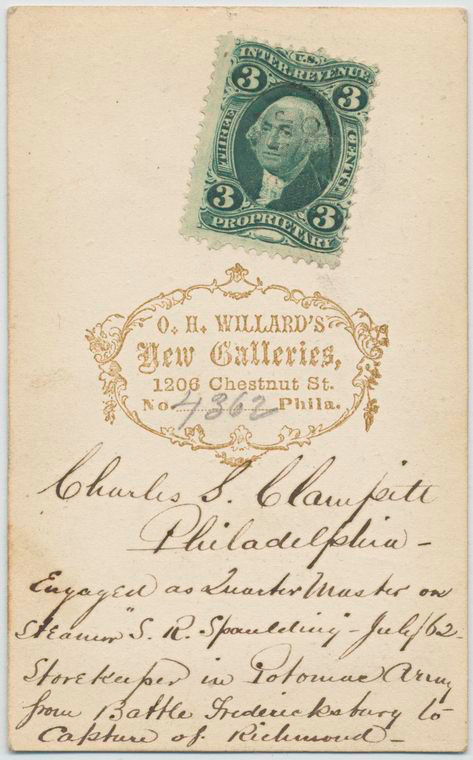 U.S.
INTER. REVENUE
3 3
THREE CENTS
3 3
PROPRIETARY
O. H. WILLARD'S
New Galleries,
1206 Chestnut St.
No. 4362 Phila.
Charles S. Clampitt
Philadelphia -
Engaged as Quarter Master on
Steamer "S. R. Spaulding" - July/62 -
Storekeeper in Potomac Army
from Battle Fredericksburg to
Capture of Richmond -